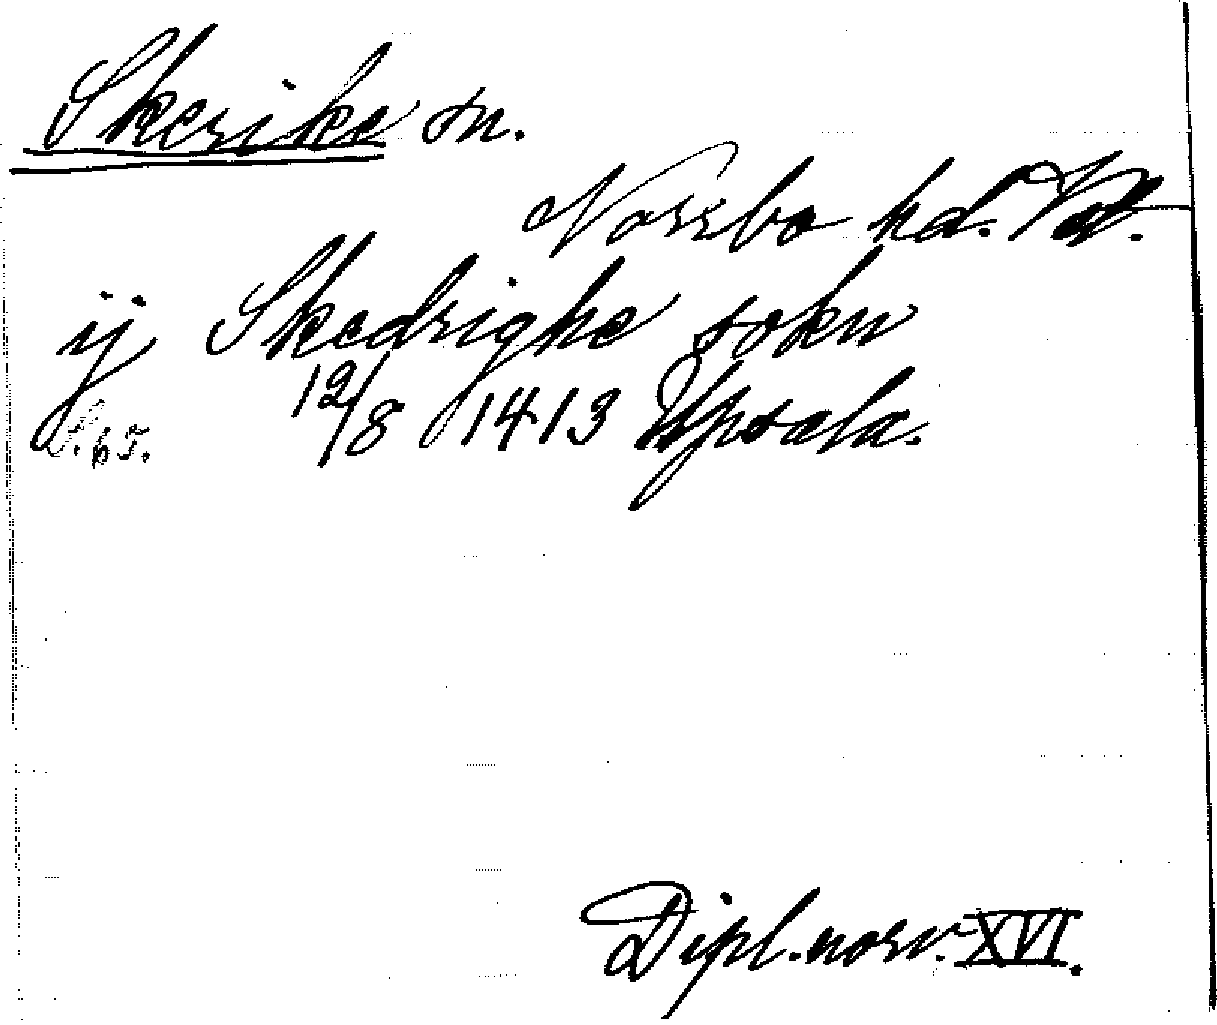 Skerike sn.
Norrbo hd. Vstm.
ij Skedrighe sokn
S. 65. 12/8 1413 Upsala.
Dipl. norv. XVI.